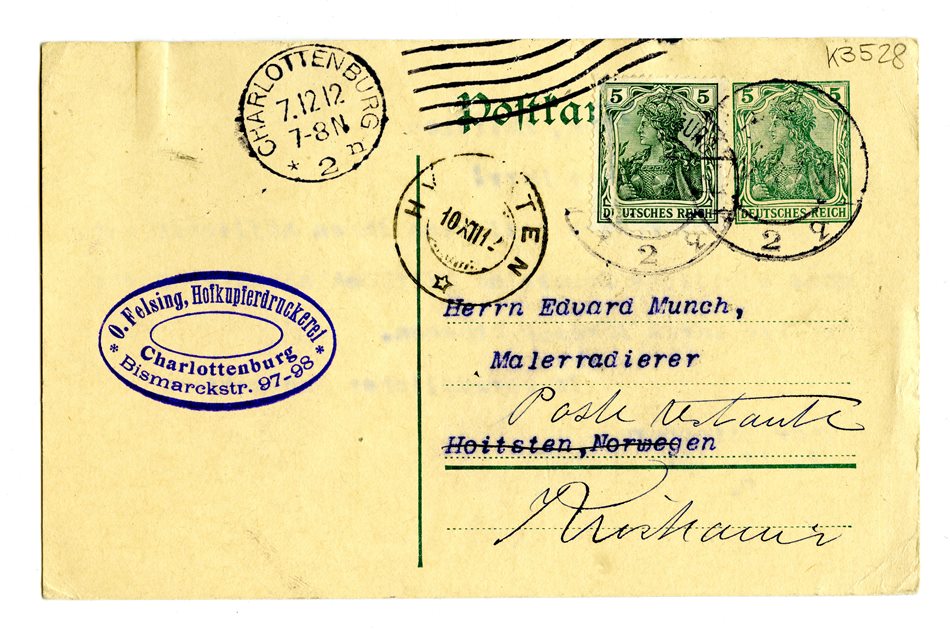 K3528
CHARLOTTENBURG
7.12.12
7-8 N.
* 2 n
5 5
DEUTSCHES REICH
5 5
DEUTSCHES REICH
2 q
2 q
TEN
10 XII 12
* O. Felsing, Hofkupferdruckerei *
Charlottenburg
Bismarckstr. 97-98
Herrn Edvard Munch,
Malerradierer
Poste restante
Hoitsten, Norwegen
Kristiania